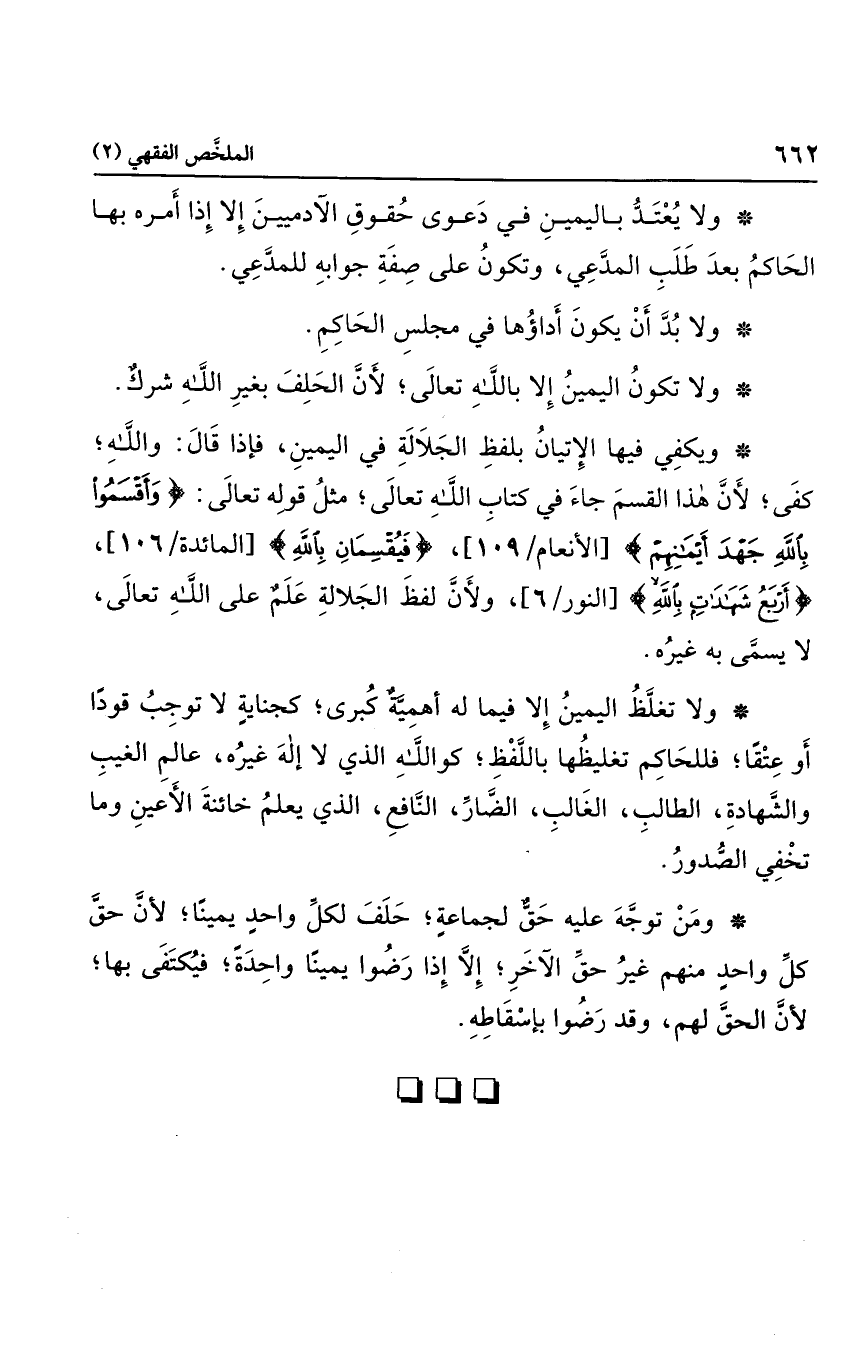 ٦٦٢ الملخَّص الفقهي (٢)
* ولا يُعْتَدُّ باليمينِ في دَعوى حُقوقِ الآدميينَ إلا إذا أَمره بها
الحَاكمُ بعدَ طَلَبِ المدَّعِي، وتكونُ على صِفَةِ جوابهِ للمدَّعِي.
* ولا بُدَّ أَنْ يكونَ أَداؤُها في مجلسِ الحَاكِمِ.
* ولا تكونُ اليمينُ إلا باللَّـٰهِ تعالَى؛ لأَنَّ الحَلِفَ بغيرِ اللَّـٰهِ شركٌ.
* ويكفِي فيها الإتيانُ بلفظِ الجَلَالَةِ في اليمينِ، فإذا قَالَ: واللَّـٰهِ؛
كفَى؛ لأَنَّ هٰذا القسمَ جاءَ في كتابِ اللَّـٰهِ تعالَى؛ مثلُ قولِه تعالَى: ﴿ وَأَقْسَمُوا۟
بِٱللَّهِ جَهْدَ أَيْمَـٰنِهِمْ ﴾ [الأنعام/ ١٠٩]، ﴿ فَيُقْسِمَانِ بِٱللَّهِ ﴾ [المائدة/ ١٠٦]،
﴿ أَرْبَعُ شَهَـٰدَٰتٍۭ بِٱللَّهِۙ ﴾ [النور/ ٦]، ولأنَّ لفظَ الجَلالةِ عَلَمٌ على اللَّـٰهِ تعالَى،
لا يسمَّى به غيرُه.
* ولا تغلَّظُ اليمينُ إلا فيما له أهميَّةٌ كُبرى؛ كجنايةٍ لا توجِبُ قودًا
أَو عِتْقًا؛ فللحَاكِم تغليظُها باللَّفْظِ؛ كواللَّـٰهِ الذي لا إلٰهَ غيرُه، عالمِ الغيبِ
والشَّهادةِ، الطالبِ، الغَالبِ، الضَّارِّ، النَّافعِ، الذي يعلمُ خائنةَ الأَعينِ وما
تخْفِي الصُّدورُ.
* ومَنْ توجَّهَ عليه حَقٌّ لجماعةٍ؛ حَلَفَ لكلِّ واحدٍ يمينًا؛ لأنَّ حقَّ
كلِّ واحدٍ منهم غيرُ حقِّ الآخَرِ؛ إلَّا إذا رَضُوا يمينًا واحِدَةً؛ فيُكتَفَى بها؛
لأنَّ الحقَّ لهم، وقد رَضُوا بإسْقَاطِهِ.